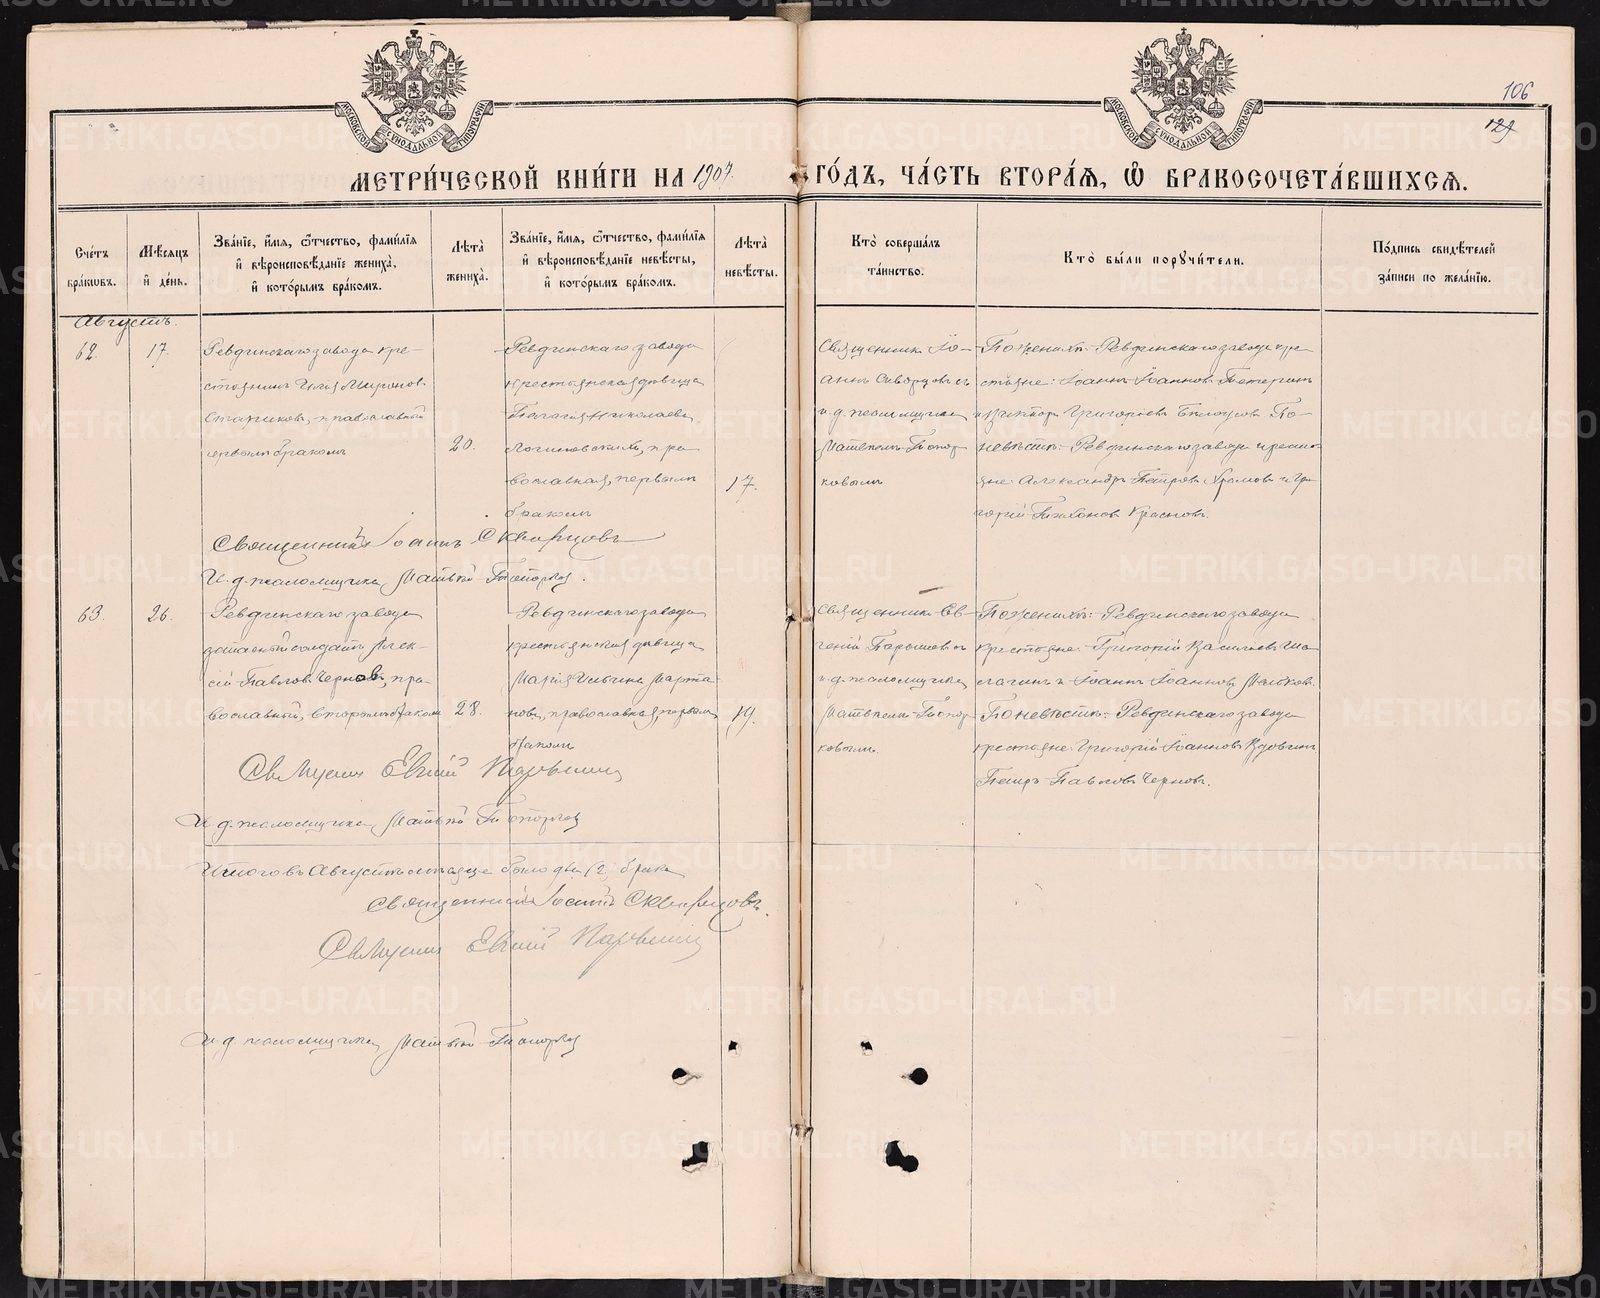 106
129
МЕТРИ́ЧЕСКОЙ КНИ́ГИ НА 1907 ГО́ДЪ, ЧА́СТЬ ВТОРА́Я, Ѽ БРАКОСОЧЕТА́ВШИХСЯ.
Сче́тъ бра́ковъ.
Мѣ́сяцъ и҆ де́нь.
Зва́нїе, и҆́мя, ѻ҆́тчество, фами́лїя и҆ вѣроисповѣ́данїе жениха̀, и҆ кото́рымъ бра́комъ.
Лѣта̀ жениха̀.
Зва́нїе, и҆́мя, ѻ҆́тчество, фами́лїя и҆ вѣроисповѣ́данїе невѣ́сты, и҆ кото́рымъ бра́комъ.
Лѣта̀ невѣ́сты.
Кто̀ соверша́лъ та́инство.
Кто̀ бы́ли порꙋчи́тели.
По́дпись свидѣ́телей за́писи по жела́нїю.
Августъ.
62.
17.
Ревдинскаго завода кре-
стьянинъ Илія Миронов
Стариковъ, православный
первымъ бракомъ
20.
Ревдинскаго завода
крестьянская дѣвица
Пелагія Николаева
Логиновскихъ, пра
вославная, первымъ
бракомъ
17.
Священникъ Іо-
аннъ Скворцовъ съ
и. д. псаломщика
Матвѣемъ Топор
ковымъ
По женихѣ: Ревдинскаго завода кре
стьяне: Іоаннъ Іоанновъ
и Викторъ Григорьевъ Бѣлоусовъ По
невѣстѣ: Ревдинскаго завода кресть
яне Александръ Петровъ Хромовъ и Гри
горій Тихоновъ Красновъ.
Священникъ Іоаннъ Скворцовъ
И. д. псаломщика Матвѣй Топорковъ.
63.
26.
Ревдинскаго завода
запасный солдатъ Алек-
сій Павловъ Черновъ, пра
вославный, вторымъ браком
28.
Ревдинскаго завода
крестьянская дѣвица
Марія Ильина Марта
нова, православная, первымъ
бракомъ
19.
Священникъ Ев-
геній Парышевъ съ
и. д. псаломщика
Матвѣемъ Топор
ковымъ.
По женихѣ: Ревдинскаго завода
крестьяне Григорій Васильевъ Ша
лагинъ и Іоаннъ Іоанновъ Мальковъ.
По невѣстѣ: Ревдинскаго завода
крестьяне Григорій Іоанновъ Вдовинъ
Петръ Павловъ Черновъ.
Священник Евгеній Парышевъ
И. д. псаломщика Матвѣй Топорковъ
Итого въ Августѣ мѣсяце было два (2) брака
Священникъ Іоаннъ Скворцовъ.
Священник Евгеній Парышевъ
И. д. псаломщика Матвѣй Топорковъ
METRIKI.GASO-URAL.RU